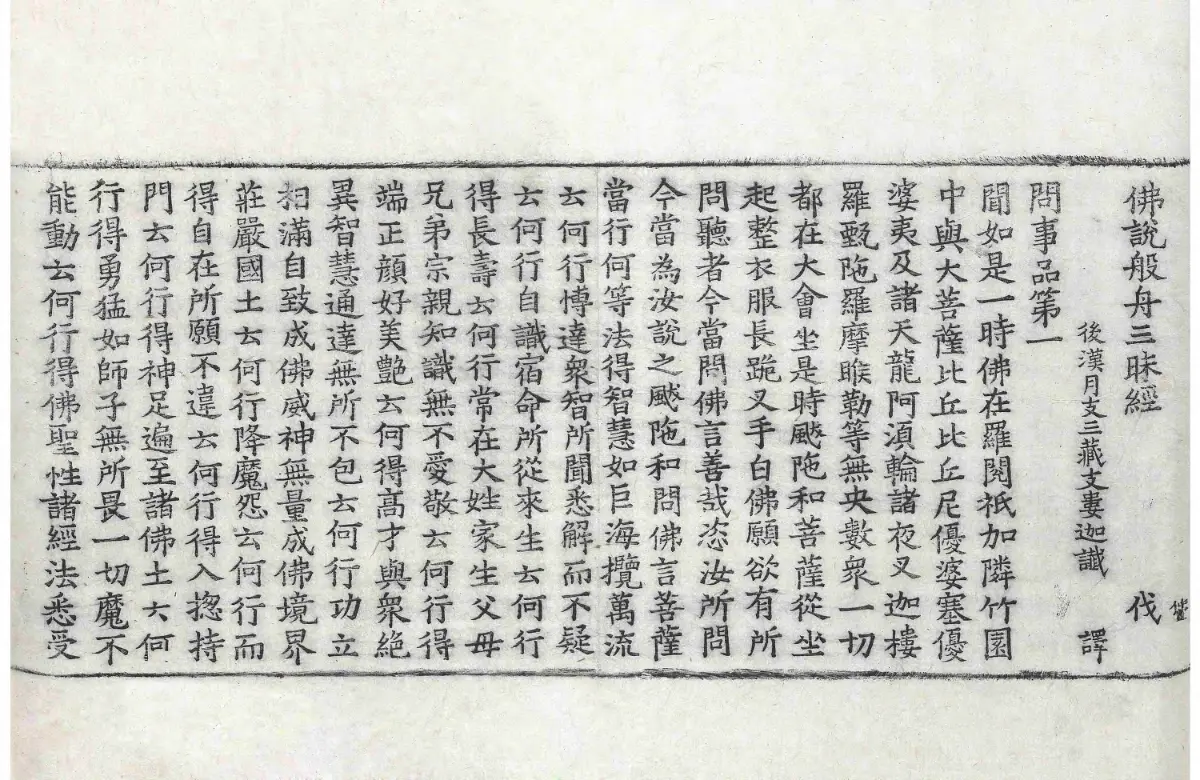 佛說般舟三昧經 伐
後漢月支三藏支婁迦讖 譯
問事品第一
聞如是一時佛在羅閱祇加隣竹園
中與大菩薩比丘比丘尼優婆塞優
婆夷及諸天龍阿湏輪諸夜叉迦樓
羅甄陁羅摩睺勒等無央數衆一切
都在大會坐是時颰陁和菩薩從坐
起整衣服長跪叉手白佛願欲有所
問聽者今當問佛言善哉恣汝所問
今當為汝說之颰陁和問佛言菩薩
當行何等法得智慧如巨海攬萬流
云何行博達衆智所聞悉解而不疑
云何行自識宿命所從來生云何行
得長壽云何行常在大姓家生父母
兄弟宗親知識無不愛敬云何行得
端正顔好美艶云何得高才與衆絶
異智慧通達無所不包云何行功立
相滿自致成佛威神無量成佛境界
莊嚴國土云何行降魔怨云何行而
得自在所願不違云何行得入揔持
門云何行得神足遍至諸佛土云何
行得勇猛如師子無所畏一切魔不
能動云何行得佛聖性諸經法悉受